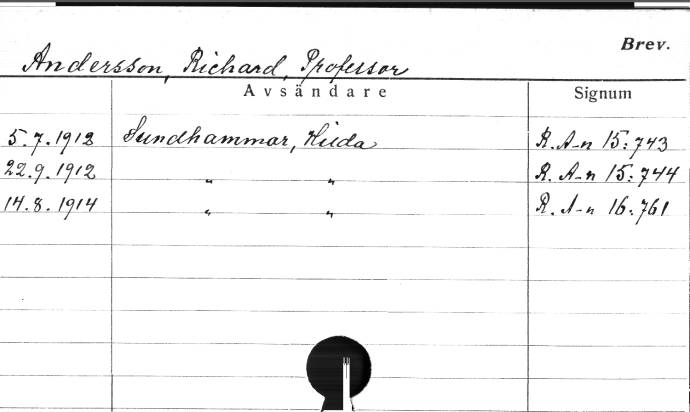 Brev.
Andersson, Richard, Professor
Avsändare Signum
5.7.1912 Sundhammar, Hilda R. A-n 15:743
22.9.1912 " " R. A-n 15:744
14.8.1914 " " R. A-n 16:761